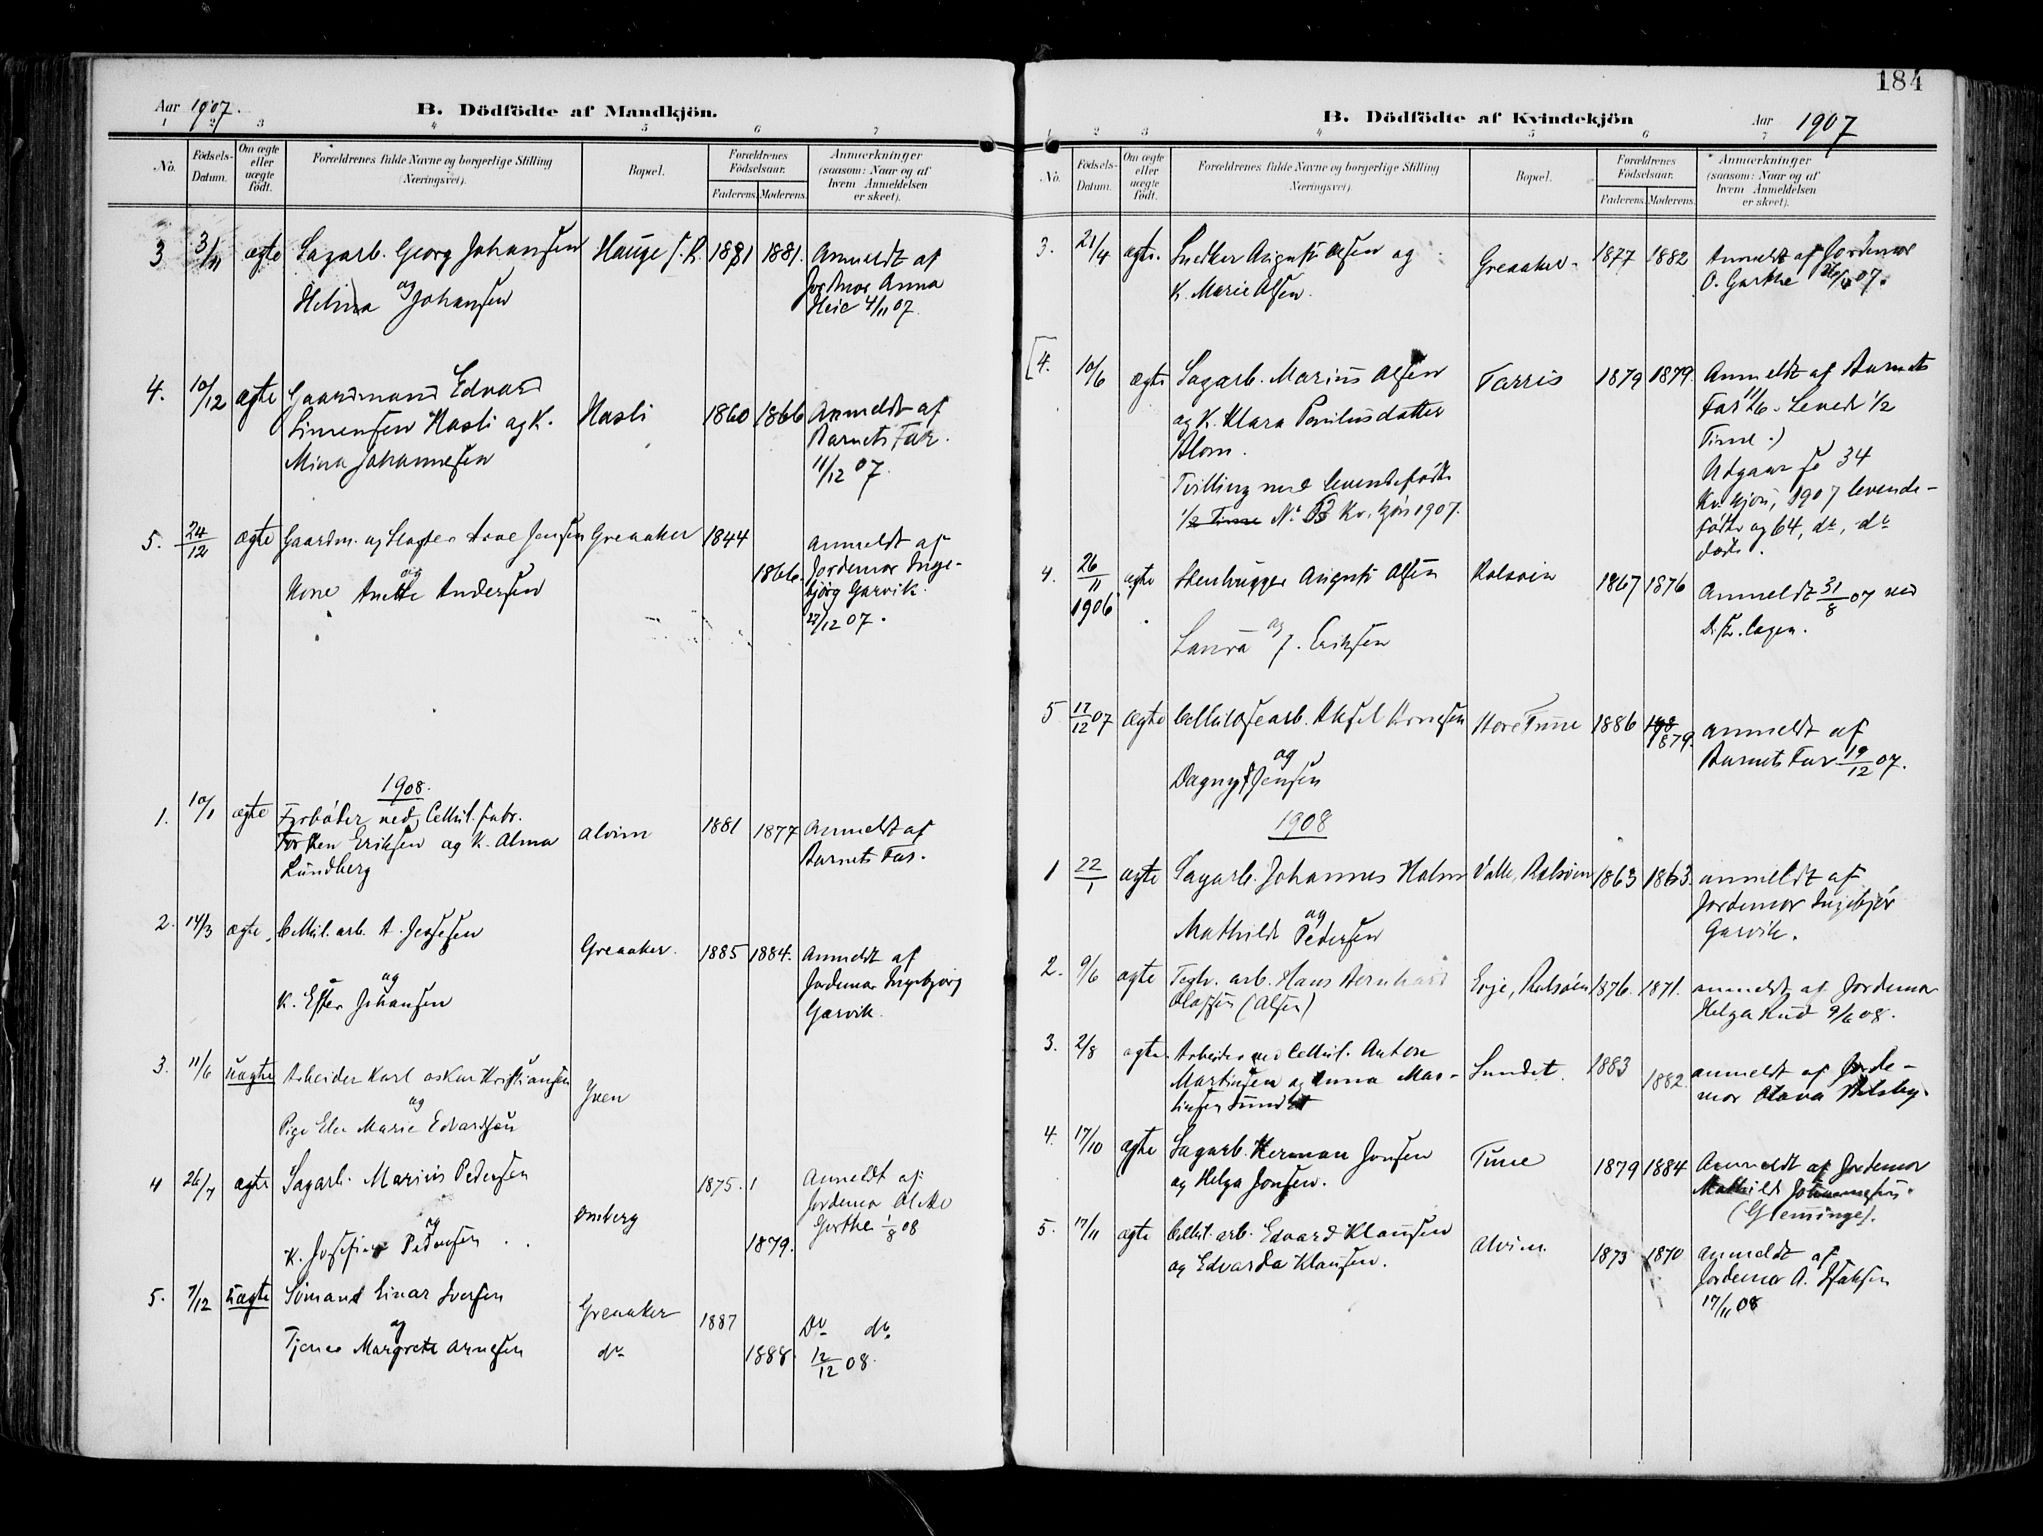 184
Aar 1907.
B. Dödfödte af Mandkjön.
1 2 3 4 5 6 7
No.
Födsels-Datum.
Om ægte eller uægte födt.
Forældrenes fulde Navne og borgerlige Stilling (Næringsvei).
Bopæl.
Forældrenes Födselsaar.
Faderens. Moderens.
Anmærkninger (saasom: Naar og af hvem Anmeldelsen er skeet).
3 3/11 ægte Sagarb. Georg Johansen Hauge 1881 1881. Anmeldt af
og Jordmor Anna
Helma Johansen Heie 4/11 07.
4. 10/12 ægte Gaardmand Edvard
Simensen Hasli og K. Hasli 1860 1866 Anmeldt af
Mina Johannesen Barnets Far.
11/12 07.
5. 24/12 ægte Gaardm. og Slagter Jensen Greaaker 1844 Anmeldt af
og 1866. Jordemor Inge-
Kone Anette Andersen björg Garvik.
27/12 07.
1908.
1. 10/1 ægte Fyrbøder ved Cellul. fabr.
Torsten Eriksen og K. Alma Alvim 1881 1877 Anmeldt af
Lundberg Barnets Far.
2. 14/3 ægte. Cellul. arb. A. Jessesen Greaaker. 1885 1884. Anmeldt af
og Jordemor Ingebjørg
K. Ester Johansen Garvik.
3. 11/6 uægte Arbeider Karl Oskar Kristiansen
og Yven
Pige Marie Edvardsen
4 26/7 ægte Sagarb. Marius Pedersen 1875. Anmeldt af
og Omberg Jordemor
K. Josefine Pedersen 1879. Garthe 1/8 08
5. 7/12 uægte Sømand Einar Iversen Greaaker 1887 Do do
og
Tjener Margrete Arnesen do 1888. 12/12 08.
B. Dödfödte af Kvindekjön
Aar 1907
1 2 3 4 5 6 7
No.
Födsels-Datum.
Om ægte eller uægte födt.
Forældrenes fulde Navne og borgerlige Stilling (Næringsvei).
Bopæl.
Forældrenes Födselsaar.
Faderens. Moderens.
Anmærkninger (saasom: Naar og af hvem Anmeldelsen er skeet).
3. 21/4 ægte. Snedker August Olsen og Greaaker. 1877 1882 Anmeldt af Jordemor
K. Marie Olsen. O. Garthe 07.
[4. 10/6 ægte Sagarb. Marius Olsen Tarris 1879 1879. Anmeldt af Barnets
og K. Klara Paulusdatter Far 11/6. Levede 1/2
Blom. Time.)
Tvilling med levendefødte Udgaar se 34
1/2 Time No Kv. kjøn 1907. Kv. kjøn, 1907 levende-
fødte og 64, do, do
døde.
4. 26/11 1906 ægte Stenhugger August Olsen Rolsøen 1867 1876 Anmeldt 31/8 07 ved
og
Laura J. Eriksen
5 17/12 07 ægte Cellulosearb. Aksel Arnesen Store Tune 1886 1879. Anmeldt af
og Barnets Far 19/12 07.
Dagny Jensen
1908
1 22/1 ægte Sagarb. Johannes Holm Valle, Rolsøen 1863 1863. Anmeldt af
og Jordemor Ingebjør
Mathilde Pedersen Garvik.
2. 9/6 ægte Teglv. arb. Hans Bernhard Evje, Rolsøen 1876. 1871. Anmeldt af Jordemor
(Olsen) Helga Rud 9/6 08.
3. 2/8 ægte. Arbeider ved Cellul. Anton Sundet. 1883 1882. anmeldt af Jorde-
Martinsen og Anna Mar- mor Olava
tinsen Sundet
4. 17/10 ægte Sagarb. Herman Jonsen Tune 1879 1884 Anmeldt af Jordemor
og Helga Jonsen. Mathilde Johannesen.
(Glemminge).
5. 17/11 ægte Cellul. arb. Edvard Klausen Alvim. 1873 1870 Anmeldt af
og Edvarda Klausen. Jordemor A. Isaksen
17/11 08